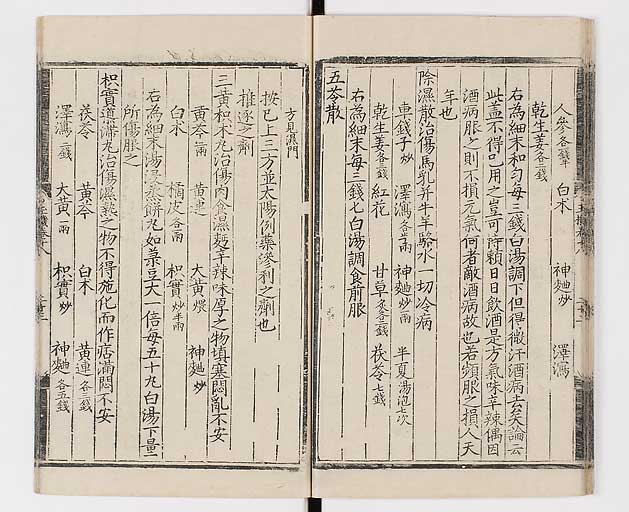 人參各錢半 白术 神麯炒 澤瀉
乾生姜各三錢
右為細末和勻每三錢白湯調下但得微汗酒病去矣論云
此蓋不得已用之豈可時賴日日飲酒是方氣味辛辣偶因
酒病服之則不損元氣何者敵酒病故也若頻服之損人天
年也
除濕散治傷馬乳并牛羊酪水一切冷病
車錢子炒 澤瀉各半兩 神麯炒一兩 半夏湯泡七次
乾生姜各三錢 紅花 甘草炙各二錢 茯苓七錢
右為細末每三錢七白湯調食前服
五苓散
方見濕門
按已上三方並太陽例藥滲利之劑也
推逐之劑
三黃枳术丸治傷肉食濕麵辛辣味厚之物填塞悶亂不安
黃芩二兩 黃連 大黃煨 神麯炒
白术 橘皮各兩 枳實炒半兩
右為細末湯浸蒸餅丸如菉豆大一倍每五十丸白湯下量
所傷服之
枳實導滯丸治傷濕熱之物不得施化而作痞滿悶不安
茯苓 黃芩 白术 黃連各三錢
澤瀉二錢 大黃一兩 枳實炒 神麯各五錢